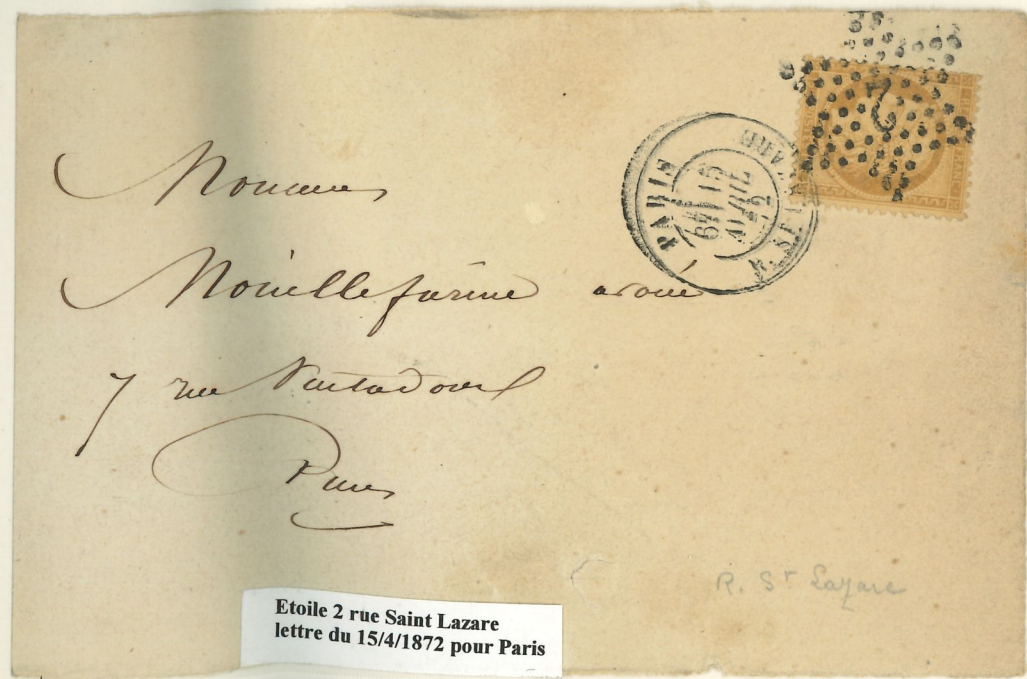 2
PARIS
R. ST LAZARE
6E/
15
AVRIL
72
FRANC
Monsieur
Nouillefarine avoué
7 rue Ventadour
Paris
R. St Lazare
Etoile 2 rue Saint Lazare
lettre du 15/4/1872 pour Paris